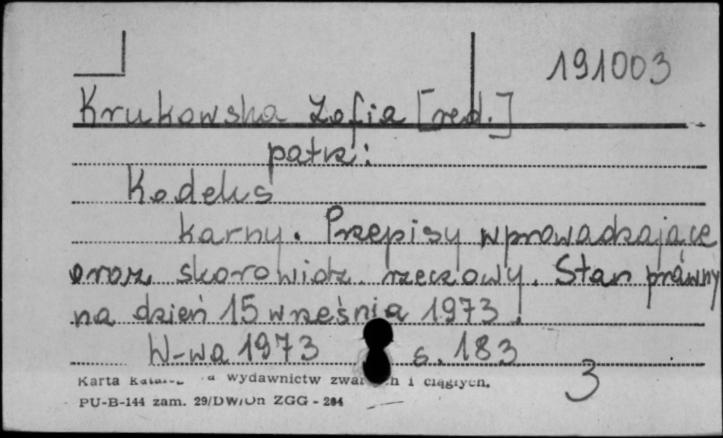 191003
Krukowska Zofia [red.]
patrz:
Kodeks
karny. Przepisy wprowadzające
oraz skorowidz rzeczowy. Stan prawny
na dzień 15 września 1973.
W-wa 1973 s. 183
3
Karta wydawnictw i ciągłych.
PU-B-144 zam. 29/DW/Dn ZGG - 284